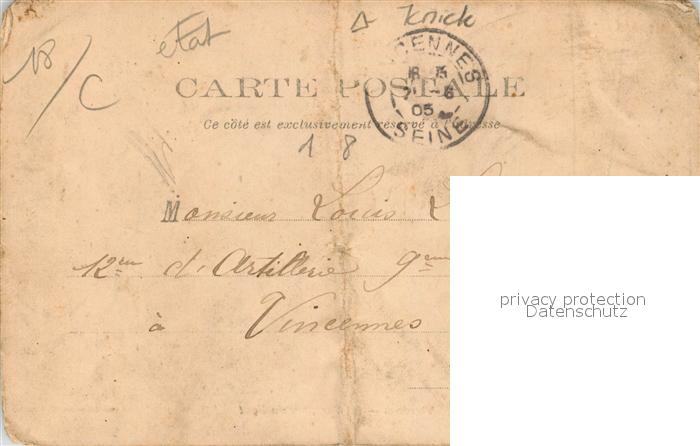 18/C
état
Knick
CARTE POSTALE
Ce côté est exclusivement réservé à l'adresse
CENNES
05
SEINE
1 8
Monsieur Louis
12ème d'Artillerie 9ème
à Vincennes
privacy protection
Datenschutz